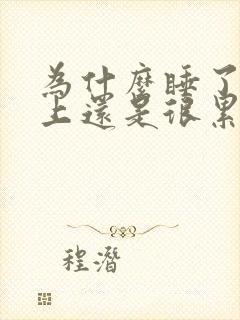 為什麼睡了
上還是很累
程潛